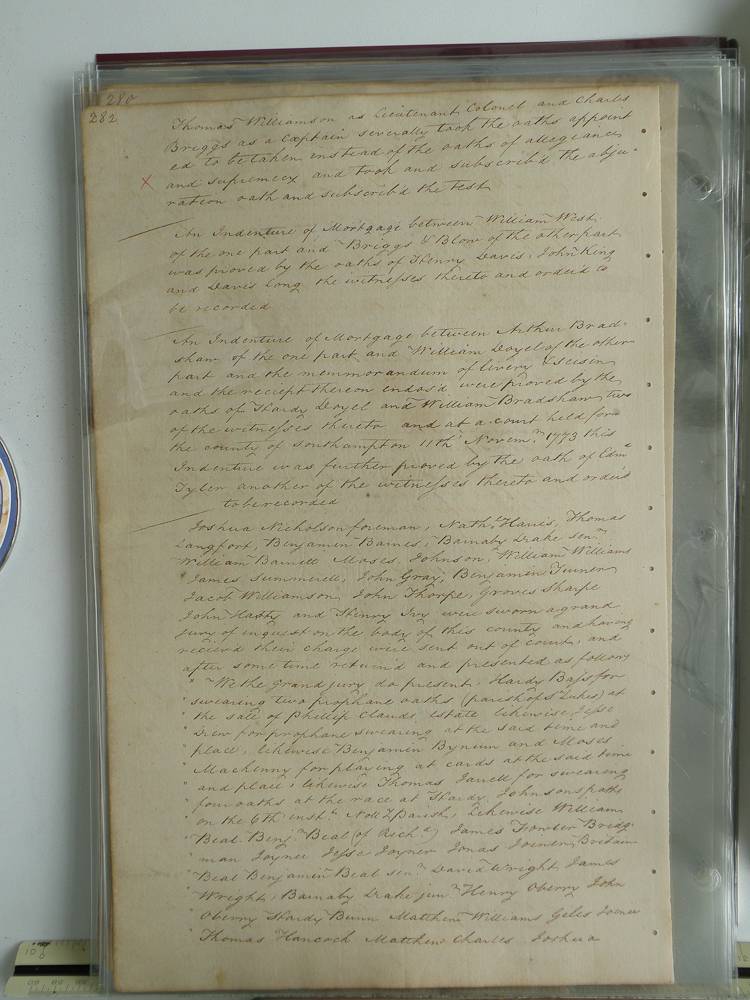 280
282
Thomas Williamson as Lieutenant Colonel and Charles
Briggs as a Captain severally took the oaths appoint
ed to be taken instead of the oaths of allegiance
and supremecy and took and subscrib'd the abju-
ration oath and subscrib'd the test
An Indenture of Mortgage between William West
of the one part and Briggs & Blow of the other part
was proved by the oaths of Henry Davis, John King
and Davis Long the witnesses thereto and order'd to
be recorded
An Indenture of Mortgage between Arthur Brad-
shaw of the one part and William Doyel of the other
part and the memmorandum of livery & seisen
and the reciept thereon endos'd were proved by the
oaths of Hardy Doyel and William Bradshaw two
of the witnesses thereto and at a court held for
the county of Southampton 11th Novem.r 1773 this
Indenture was further proved by the oath of Edm.d
Tyler another of the witnesses thereto and order'd
to be recorded
Joshua Nicholson foreman, Nath.l Harris, Thomas
Langfort, Benjamin Barnes, Barnaby Drake sen.r,
William Barnett Moses Johnson, William Williams
James Summerell, John Gray, Benjamin Turner
Jacob Williamson John Thorpe, Groves Sharpe
John Hatty and Henry Ivy were sworn a grand
jury of inquest on the body of this county and having
reciev'd their charge were sent out of court, and
after some time return'd and presented as follows
" We the Grand jury do present Hardy Bass for
" swearing two prophane oaths (parish of St Lukes) at
" the sale of Phillip Clauds estate likewise Jesse
" Drew for prophane swearing at the said time and
" place, likewise Benjamin Bynum and Moses
" Mackenny for playing at cards at the said time
" and place, likewise Thomas Jarrell for swearing
" four oaths at the race at Hardy Johnsons paths
" on the 6th inst. Nott.y Parish, Likewise William
" Beal Benj.n Beal (of Rich.d) James Fowler Bridg-
" man Joyner Jesse Joyner Jonas Joener, Britain
" Beal Benjamin Beal sen.r David Wright James
" Wright, Barnaby Drake jun.r Henry Oberry John
" Oberry Hardy Bunn Matthew Williams Giles Joener
" Thomas Hancock Matthew Charles Joshua